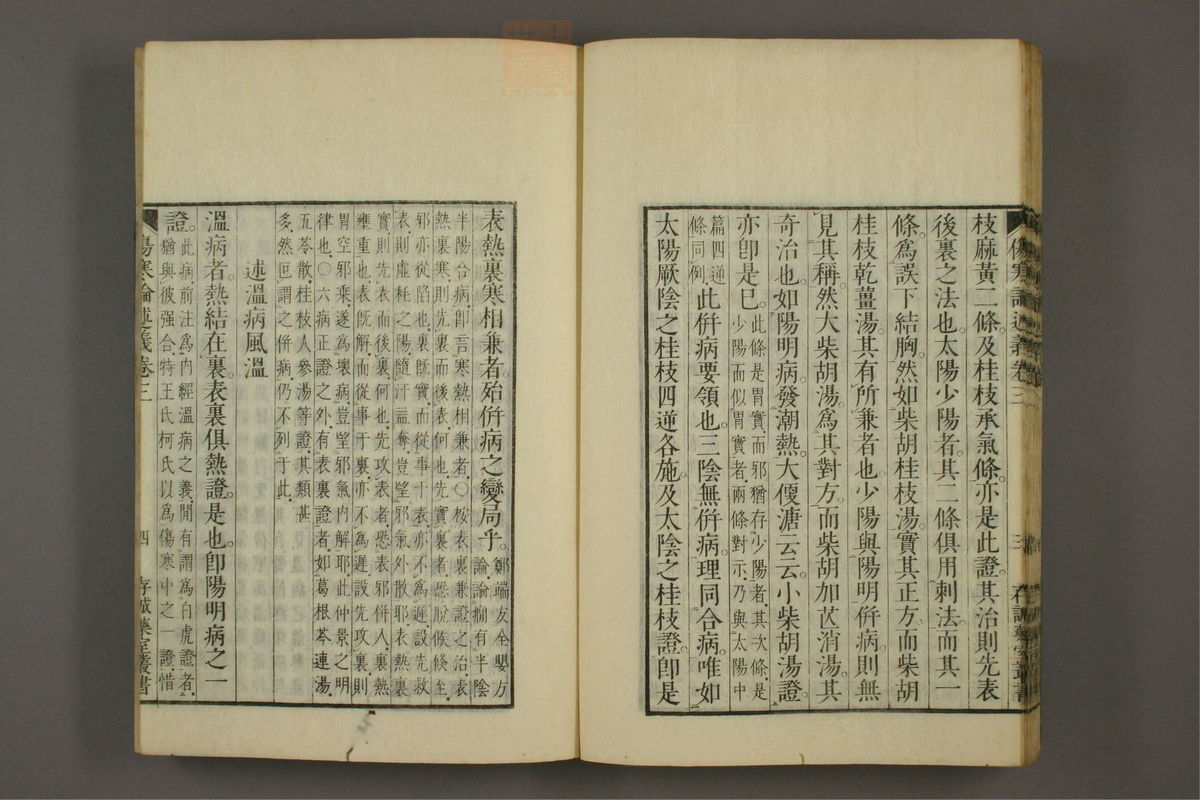 枝麻黃二條及桂枝承氣條亦是此證其治則先表
後裏之法也太陽少陽者其二條俱用刺法而其一
條爲誤下結胸然如柴胡桂枝湯實其正方而柴胡
桂枝乾薑湯其有所兼者也少陽與陽明併病則無
見其稱然大柴胡湯爲其對方而柴胡加芒消湯其
奇治也如陽明病發潮熱大便溏云云小柴胡湯證
亦卽是已此條是胃實而邪猶存少陽者其次條是
少陽而似胃實者兩條對示乃與太陽中
篇四逆
條同例此併病要領也三陰無併病理同合病唯如
太陽厥陰之桂枝四逆各施及太陰之桂枝證卽是
表熱裏寒相兼者殆併病之變局乎鄭端友全嬰方
論論癇有半陰
半陽合病卽言寒熱相兼者○桉表裏兼證之治表
熱裏寒則先裏而後表何也先實裏者恐脫候倏至
邪亦從陷也裏既實而從事于表亦不爲遲設先救
表則虛秏之陽隨汗益奪豈望邪氣外散耶表熱裏
實則先表而後裏何也先攻表者恐表邪併入裏熱
壅重也表既解而從事于裏亦不爲遲設先攻裏則
胃空邪乘遂爲壞病豈望邪氣內解耶此仲景之明
律也○六病正證之外有表裏證者如葛根芩連湯
五苓散桂枝人參湯等證其類甚
多然叵謂之併病仍不列于此
述溫病風溫
溫病者熱結在裏表裏俱熱證是也卽陽明病之一
證此病前注爲內經溫病之義閒有謂爲白虎證者
猶與彼强合特王氏柯氏以爲傷寒中之一證惜
傷寒論述義卷三
四
存誠藥室叢書